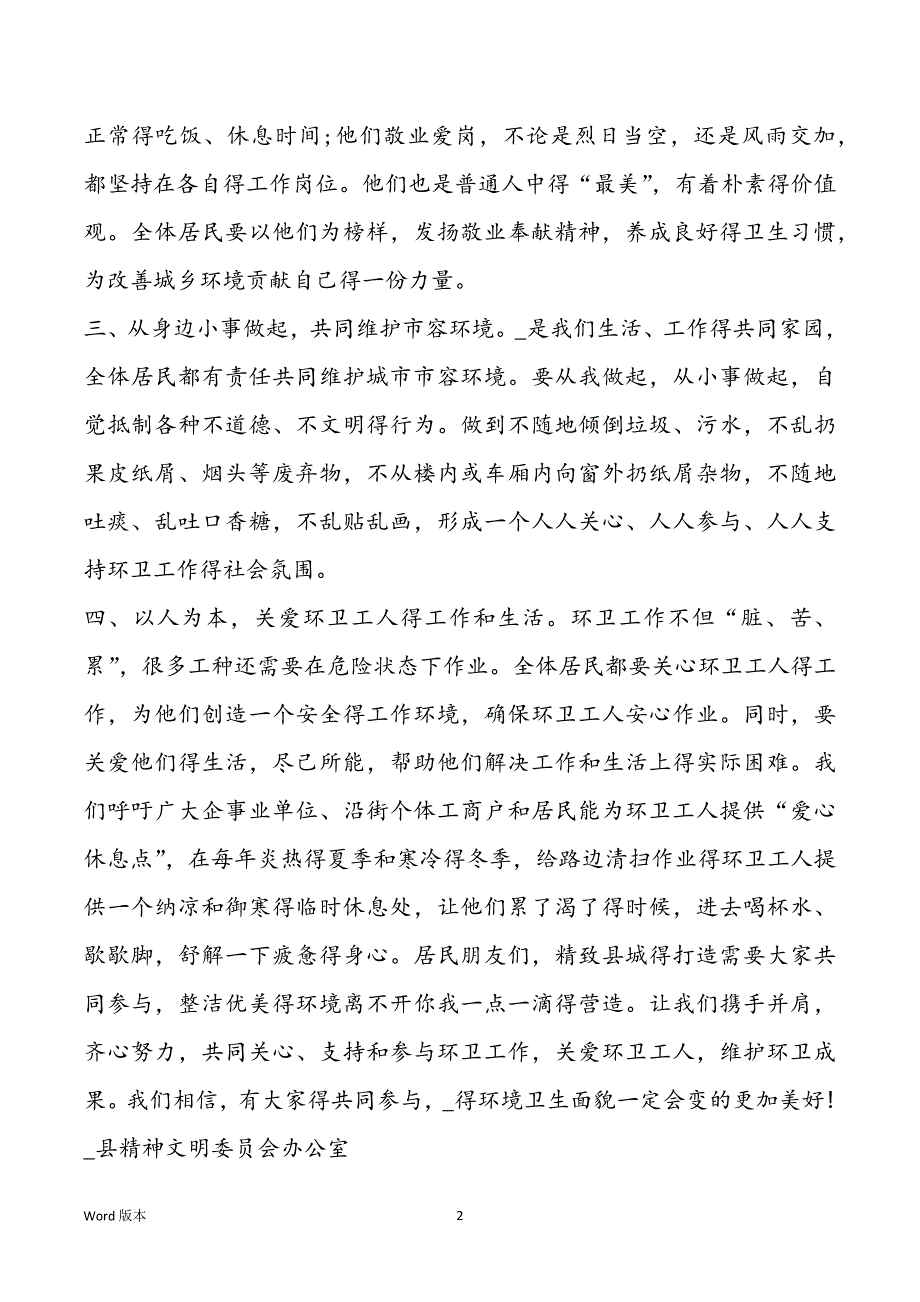 正常得吃饭、休息时间;他们敬业爱岗，不论是烈日当空，还是风雨交加，
都坚持在各自得工作岗位。他们也是普通人中得“最美”，有着朴素得价值
观。全体居民要以他们为榜样，发扬敬业奉献精神，养成良好得卫生习惯，
为改善城乡环境贡献自己得一份力量。
三、从身边小事做起，共同维护市容环境。_是我们生活、工作得共同家园，
全体居民都有责任共同维护城市市容环境。要从我做起，从小事做起，自
觉抵制各种不道德、不文明得行为。做到不随地倾倒垃圾、污水，不乱扔
果皮纸屑、烟头等废弃物，不从楼内或车厢内向窗外扔纸屑杂物，不随地
吐痰、乱吐口香糖，不乱贴乱画，形成一个人人关心、人人参与、人人支
持环卫工作得社会氛围。
四、以人为本，关爱环卫工人得工作和生活。环卫工作不但“脏、苦、
累”，很多工种还需要在危险状态下作业。全体居民都要关心环卫工人得工
作，为他们创造一个安全得工作环境，确保环卫工人安心作业。同时，要
关爱他们得生活，尽己所能，帮助他们解决工作和生活上得实际困难。我
们呼吁广大企事业单位、沿街个体工商户和居民能为环卫工人提供“爱心
休息点”，在每年炎热得夏季和寒冷得冬季，给路边清扫作业得环卫工人提
供一个纳凉和御寒得临时休息处，让他们累了渴了得时候，进去喝杯水、
歇歇脚，舒解一下疲惫得身心。居民朋友们，精致县城得打造需要大家共
同参与，整洁优美得环境离不开你我一点一滴得营造。让我们携手并肩，
齐心努力，共同关心、支持和参与环卫工作，关爱环卫工人，维护环卫成
果。我们相信，有大家得共同参与，_得环境卫生面貌一定会变的更加美好!
_县精神文明委员会办公室
Word 版本 2